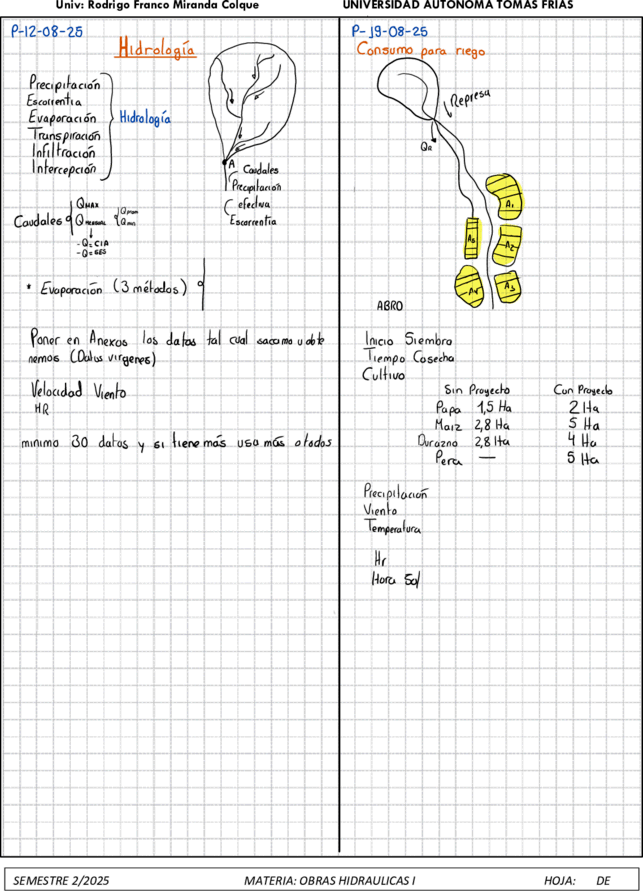 Univ: Rodrigo Franco Miranda Colque
UNIVERSIDAD AUTONOMA TOMAS FRIAS
P-12-08-25
Hidrología
Precipitación
Escorrentia
Evaporación
Transpiración
Infiltración
Intercepción
Hidrología
A
Caudales
Precipitacion
efectiva
Escorrentia
Caudales
QMAX
QMENSUAL
Qmax
Qmin
-Q=CIA
* Evaporación (3 métodos)
Poner en Anexos los datos tal cual sacamo u obte
nemos (Datos virgenes)
Velocidad Viento
HR
minimo 30 datos y si tiene más usa más o todos
P-19-08-25
Consumo para riego
Represa
A1
A2
A3
A4
A5
ABRO
Inicio Siembra
Tiempo Cosecha
Cultivo
Sin Proyecto Con Proyecto
Papa 1,5 Ha 2 Ha
Maiz 2,8 Ha 5 Ha
Durazno 2,8 Ha 4 Ha
Pera — 5 Ha
Precipitación
Viento
Temperatura
Hr
Hora Sol
SEMESTRE 2/2025 MATERIA: OBRAS HIDRAULICAS I HOJA: DE